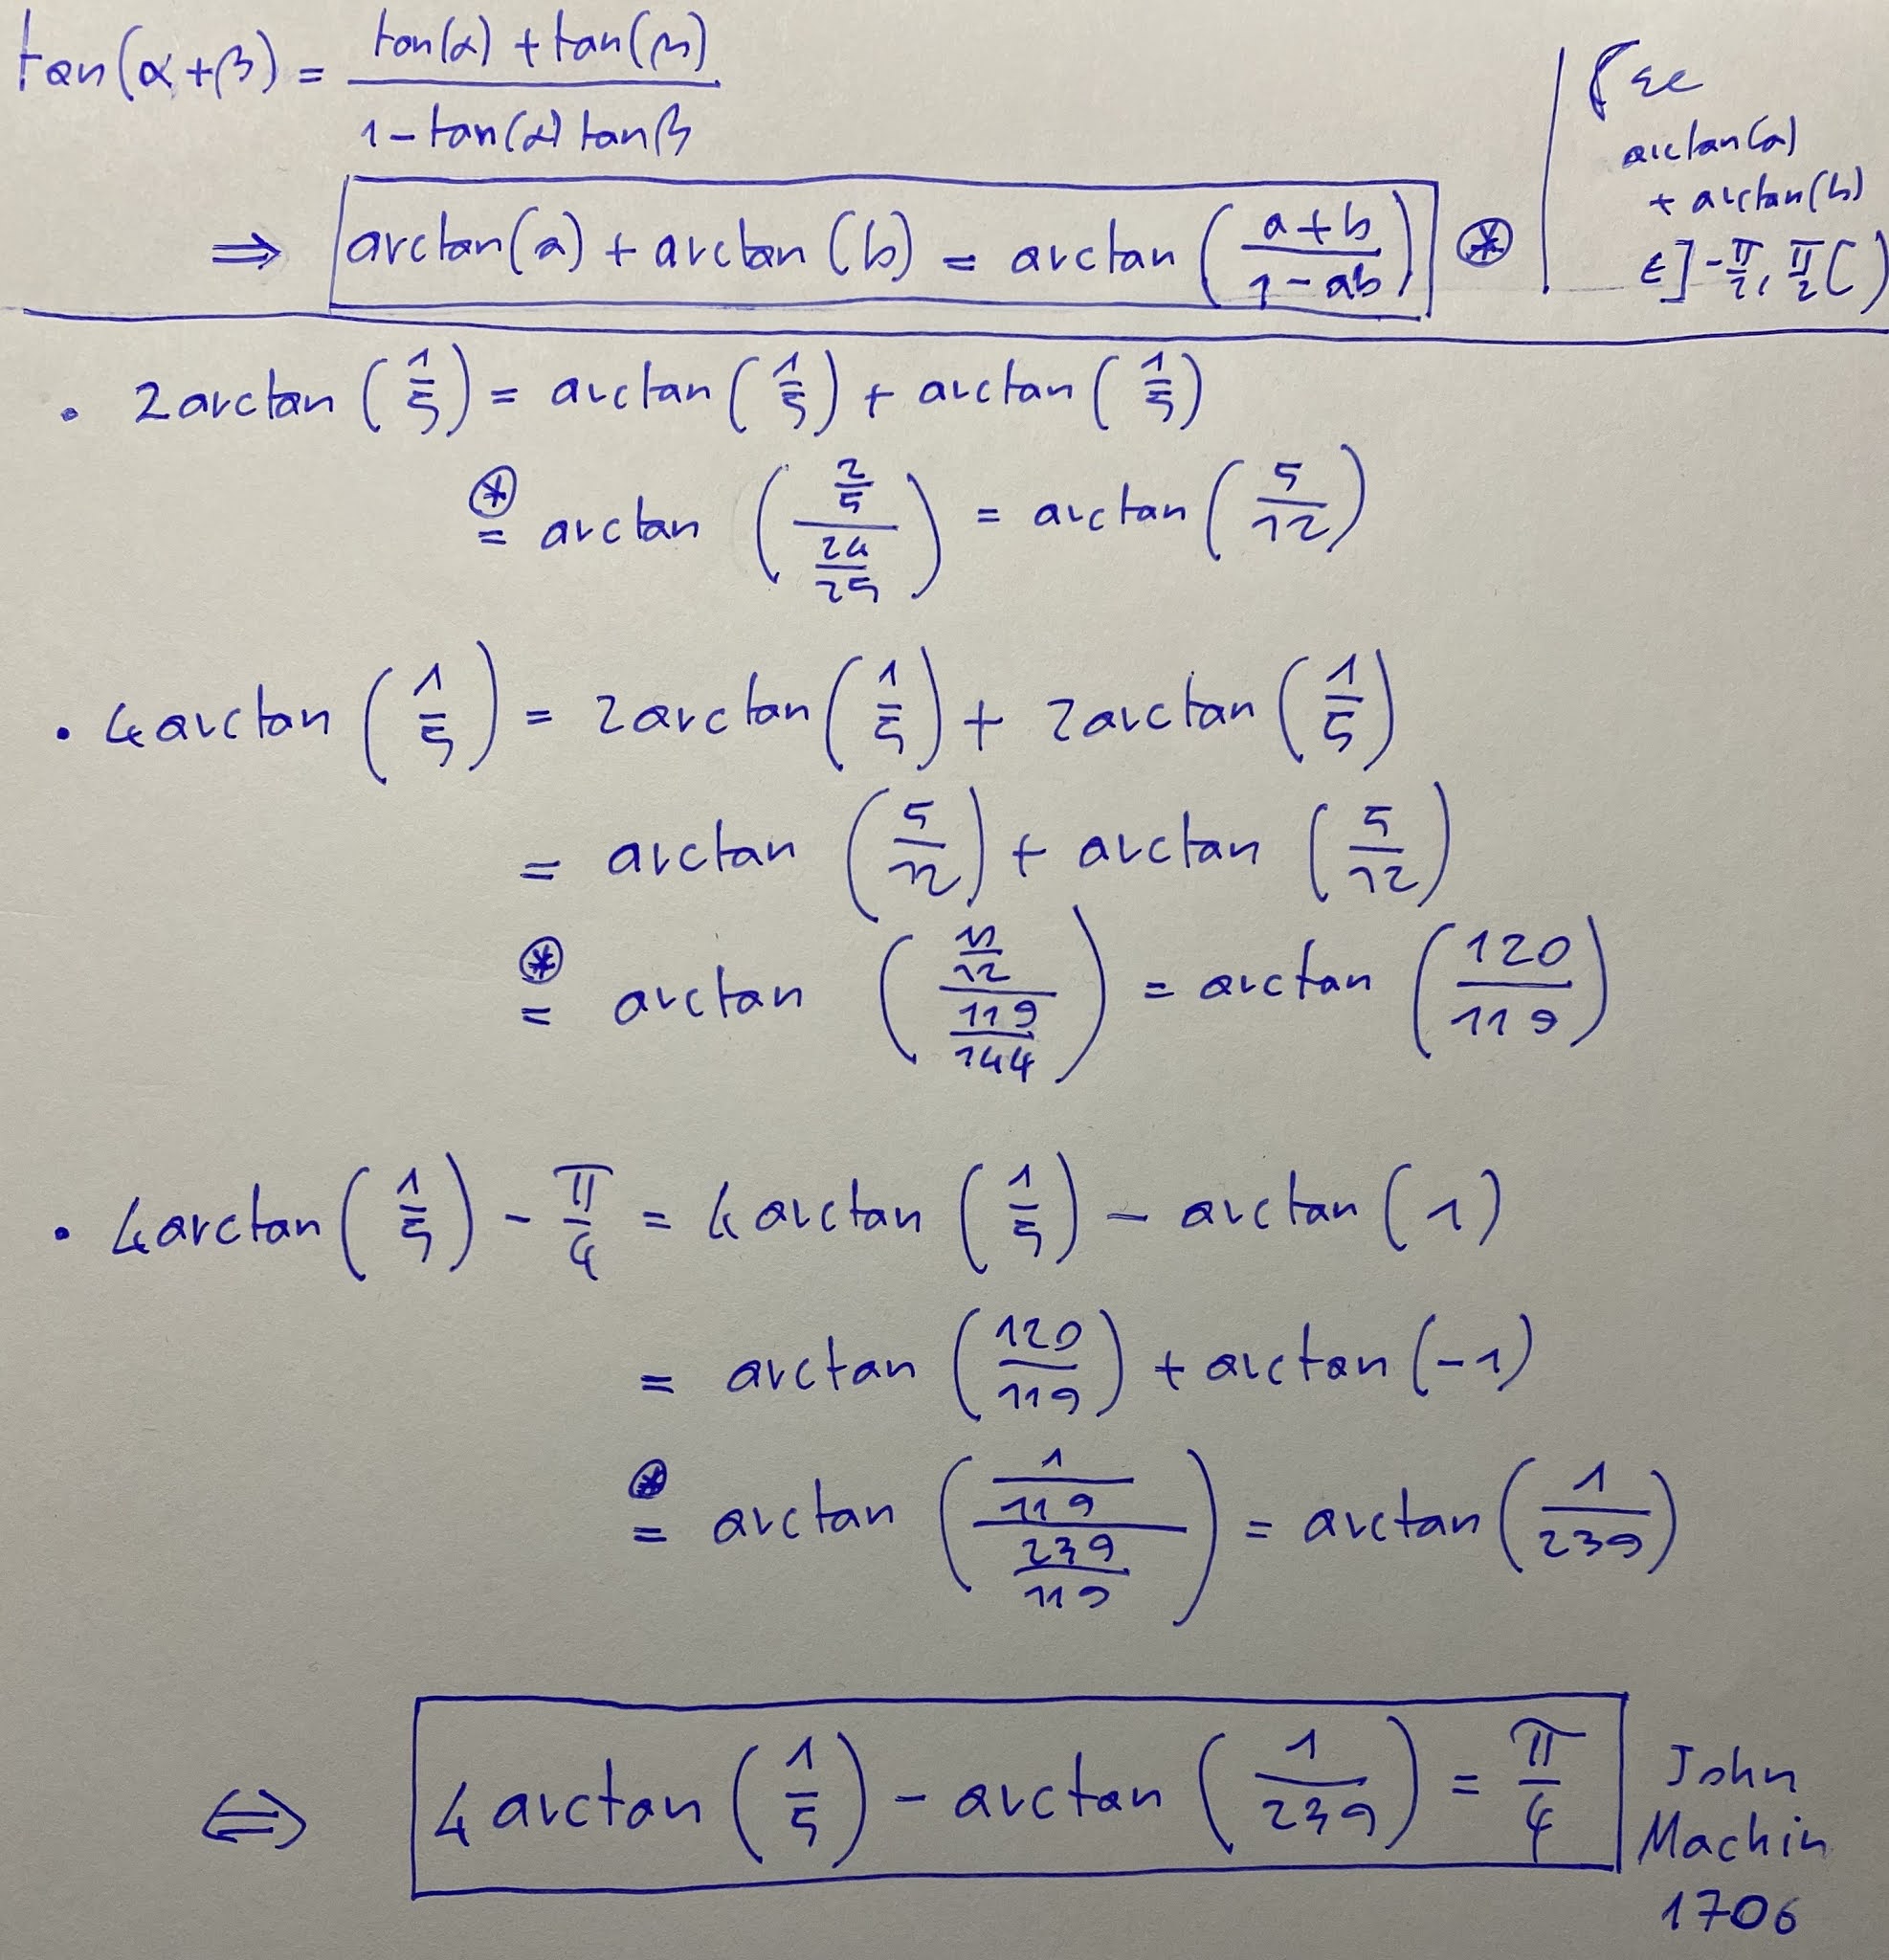 tan(α+β) = (tan(α) + tan(β))/(1 − tan(α) tanβ)
⇒ arctan(a) + arctan(b) = arctan((a+b)/(1−ab)) ⊛
arctan(a)
+ arctan(b)
∈ ]−π/2, π/2[ )
• 2 arctan(1/5) = arctan(1/5) + arctan(1/5)
⊛= arctan((2/5)/(24/25)) = arctan(5/12)
• 4 arctan(1/5) = 2 arctan(1/5) + 2 arctan(1/5)
= arctan(5/12) + arctan(5/12)
⊛= arctan((10/12)/(119/144)) = arctan(120/119)
• 4 arctan(1/5) − π/4 = 4 arctan(1/5) − arctan(1)
= arctan(120/119) + arctan(−1)
⊛= arctan((1/119)/(239/119)) = arctan(1/239)
⇔ 4 arctan(1/5) − arctan(1/239) = π/4
John
Machin
1706